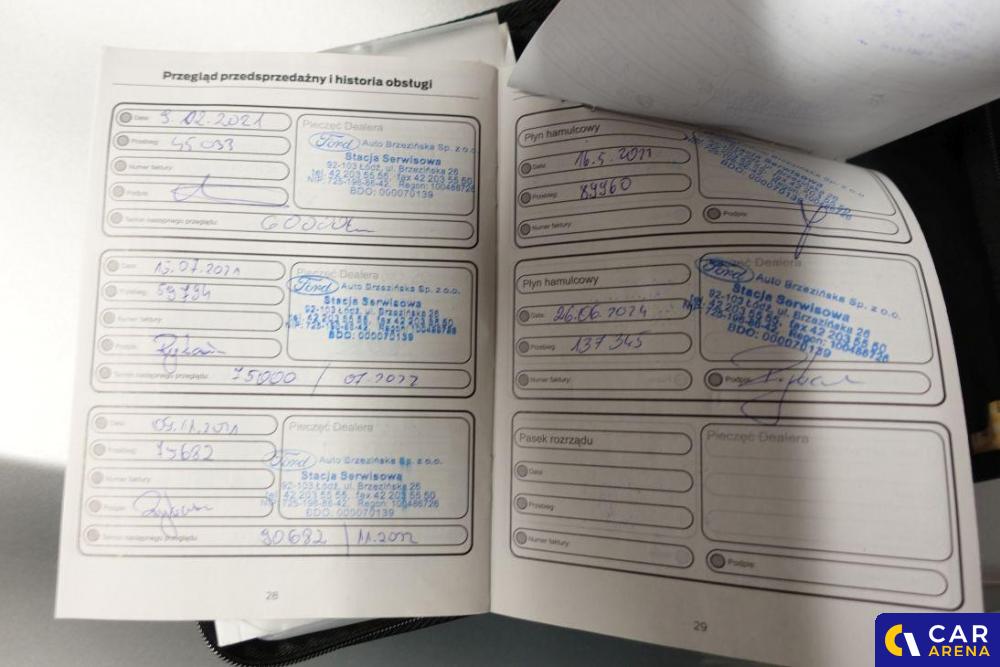 Przegląd przedsprzedażny i historia obsługi
Data: 9.02.2021
Przebieg: 45 033
Numer faktury:
Podpis:
Termin następnego przeglądu:
Pieczęć Dealera
Ford Auto Brzezińska Sp. z o.o.
Stacja Serwisowa
92-103 Łódź, ul. Brzezińska 26
tel. 42 203 55 55, fax 42 203 55 50
NIP: 725-196-86-42, Regon: 100486726
BDO: 000070139
Data: 15.07.2021
Przebieg: 59794
Numer faktury:
Podpis:
Termin następnego przeglądu: 75000 / 07.2022
Pieczęć Dealera
Ford Auto Brzezińska Sp. z o.o.
Stacja Serwisowa
92-103 Łódź, ul. Brzezińska 26
tel. 42 203 55 55, fax 42 203 55 50
NIP: 725-196-86-42, Regon: 100486726
BDO: 000070139
Data: 09.11.2021
Przebieg: 75682
Numer faktury:
Podpis:
Termin następnego przeglądu: 90682 / 11.2022
Pieczęć Dealera
Ford Auto Brzezińska Sp. z o.o.
Stacja Serwisowa
92-103 Łódź, ul. Brzezińska 26
tel. 42 203 55 55, fax 42 203 55 50
NIP: 725-196-86-42, Regon: 100486726
BDO: 000070139
28
Płyn hamulcowy
Data: 16.5.2022
Przebieg: 89960
Numer faktury:
Podpis:
Płyn hamulcowy
Data: 26.06.2024
Przebieg: 137 345
Numer faktury:
Pieczęć Dealera
Ford Auto Brzezińska Sp. z o.o.
Stacja Serwisowa
92-103 Łódź, ul. Brzezińska 26
tel. 42 203 55 55, fax 42 203 55 50
NIP: 725-196-86-42, Regon: 100486726
BDO: 000070139
Podpis:
Pasek rozrządu
Data:
Przebieg:
Numer faktury:
Pieczęć Dealera
Podpis:
29
CAR
ARENA